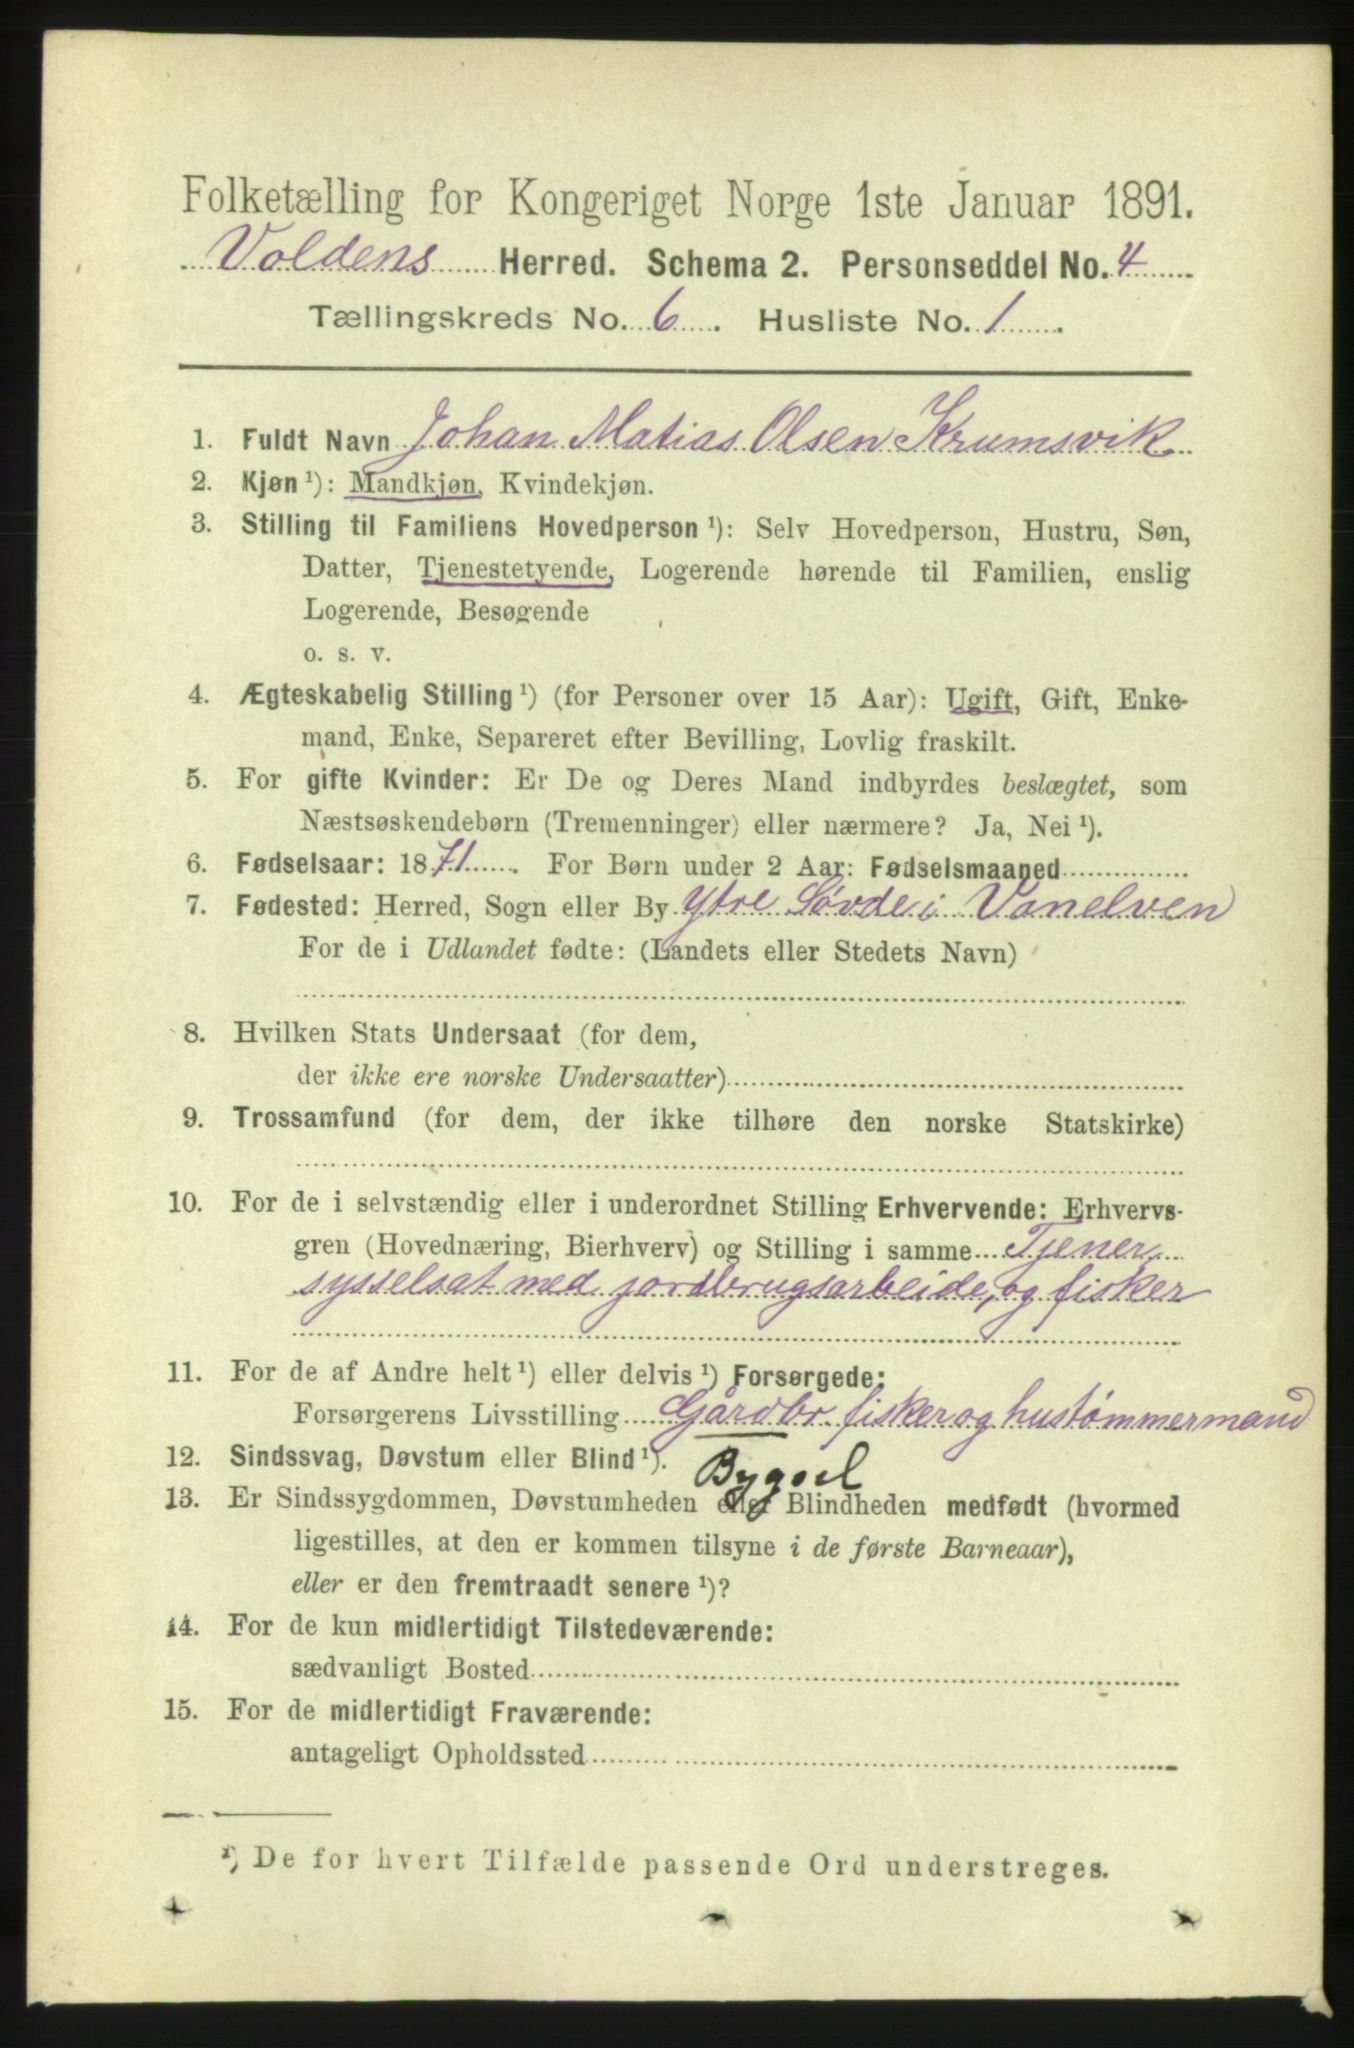 Folketælling for Kongeriget Norge 1ste Januar 1891.
Voldens Herred. Schema 2. Personseddel No. 4
Tællingskreds No. 6. Husliste No. 1.
1. Fuldt Navn Johan Matias Olsen Krumsvik
2. Kjøn ¹): Mandkjøn, Kvindekjøn.
3. Stilling til Familiens Hovedperson ¹): Selv Hovedperson, Hustru, Søn,
Datter, Tjenestetyende, Logerende hørende til Familien, enslig
Logerende, Besøgende
o. s. v.
4. Ægteskabelig Stilling ¹) (for Personer over 15 Aar): Ugift, Gift, Enke-
mand, Enke, Separeret efter Bevilling, Lovlig fraskilt.
5. For gifte Kvinder: Er De og Deres Mand indbyrdes beslægtet, som
Næstsøskendebørn (Tremenninger) eller nærmere? Ja, Nei ¹).
6. Fødselsaar: 1871. For Børn under 2 Aar: Fødselsmaaned
7. Fødested: Herred, Sogn eller By Ytre Søvde i Vanelven
For de i Udlandet fødte: (Landets eller Stedets Navn)
8. Hvilken Stats Undersaat (for dem,
der ikke ere norske Undersaatter)
9. Trossamfund (for dem, der ikke tilhøre den norske Statskirke)
10. For de i selvstændig eller i underordnet Stilling Erhvervende: Erhvervs-
gren (Hovednæring, Bierhverv) og Stilling i samme Tjener,
sysselsat med jordbrugsarbeide, og fisker
11. For de af Andre helt ¹) eller delvis ¹) Forsørgede:
Forsørgerens Livsstilling Gårdbr. fisker og hustømmermand
12. Sindssvag, Døvstum eller Blind ¹). Bygsel
13. Er Sindssygdommen, Døvstumheden eller Blindheden medfødt (hvormed
ligestilles, at den er kommen tilsyne i de første Barneaar),
eller er den fremtraadt senere ¹)?
14. For de kun midlertidigt Tilstedeværende:
sædvanligt Bosted
15. For de midlertidigt Fraværende:
antageligt Opholdssted
¹) De for hvert Tilfælde passende Ord understreges.